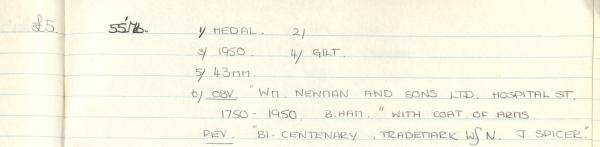 £5. 55'76. 1/ MEDAL. 2/
3/ 1950 4/ GILT.
5/ 43mm.
6/ OBV. "Wm. NEWMAN AND SONS LTD. HOSPITAL ST.
1750 - 1950. B.HAM." WITH COAT OF ARMS
REV. "BI-CENTENARY. TRADEMARK WSN. J SPICER".